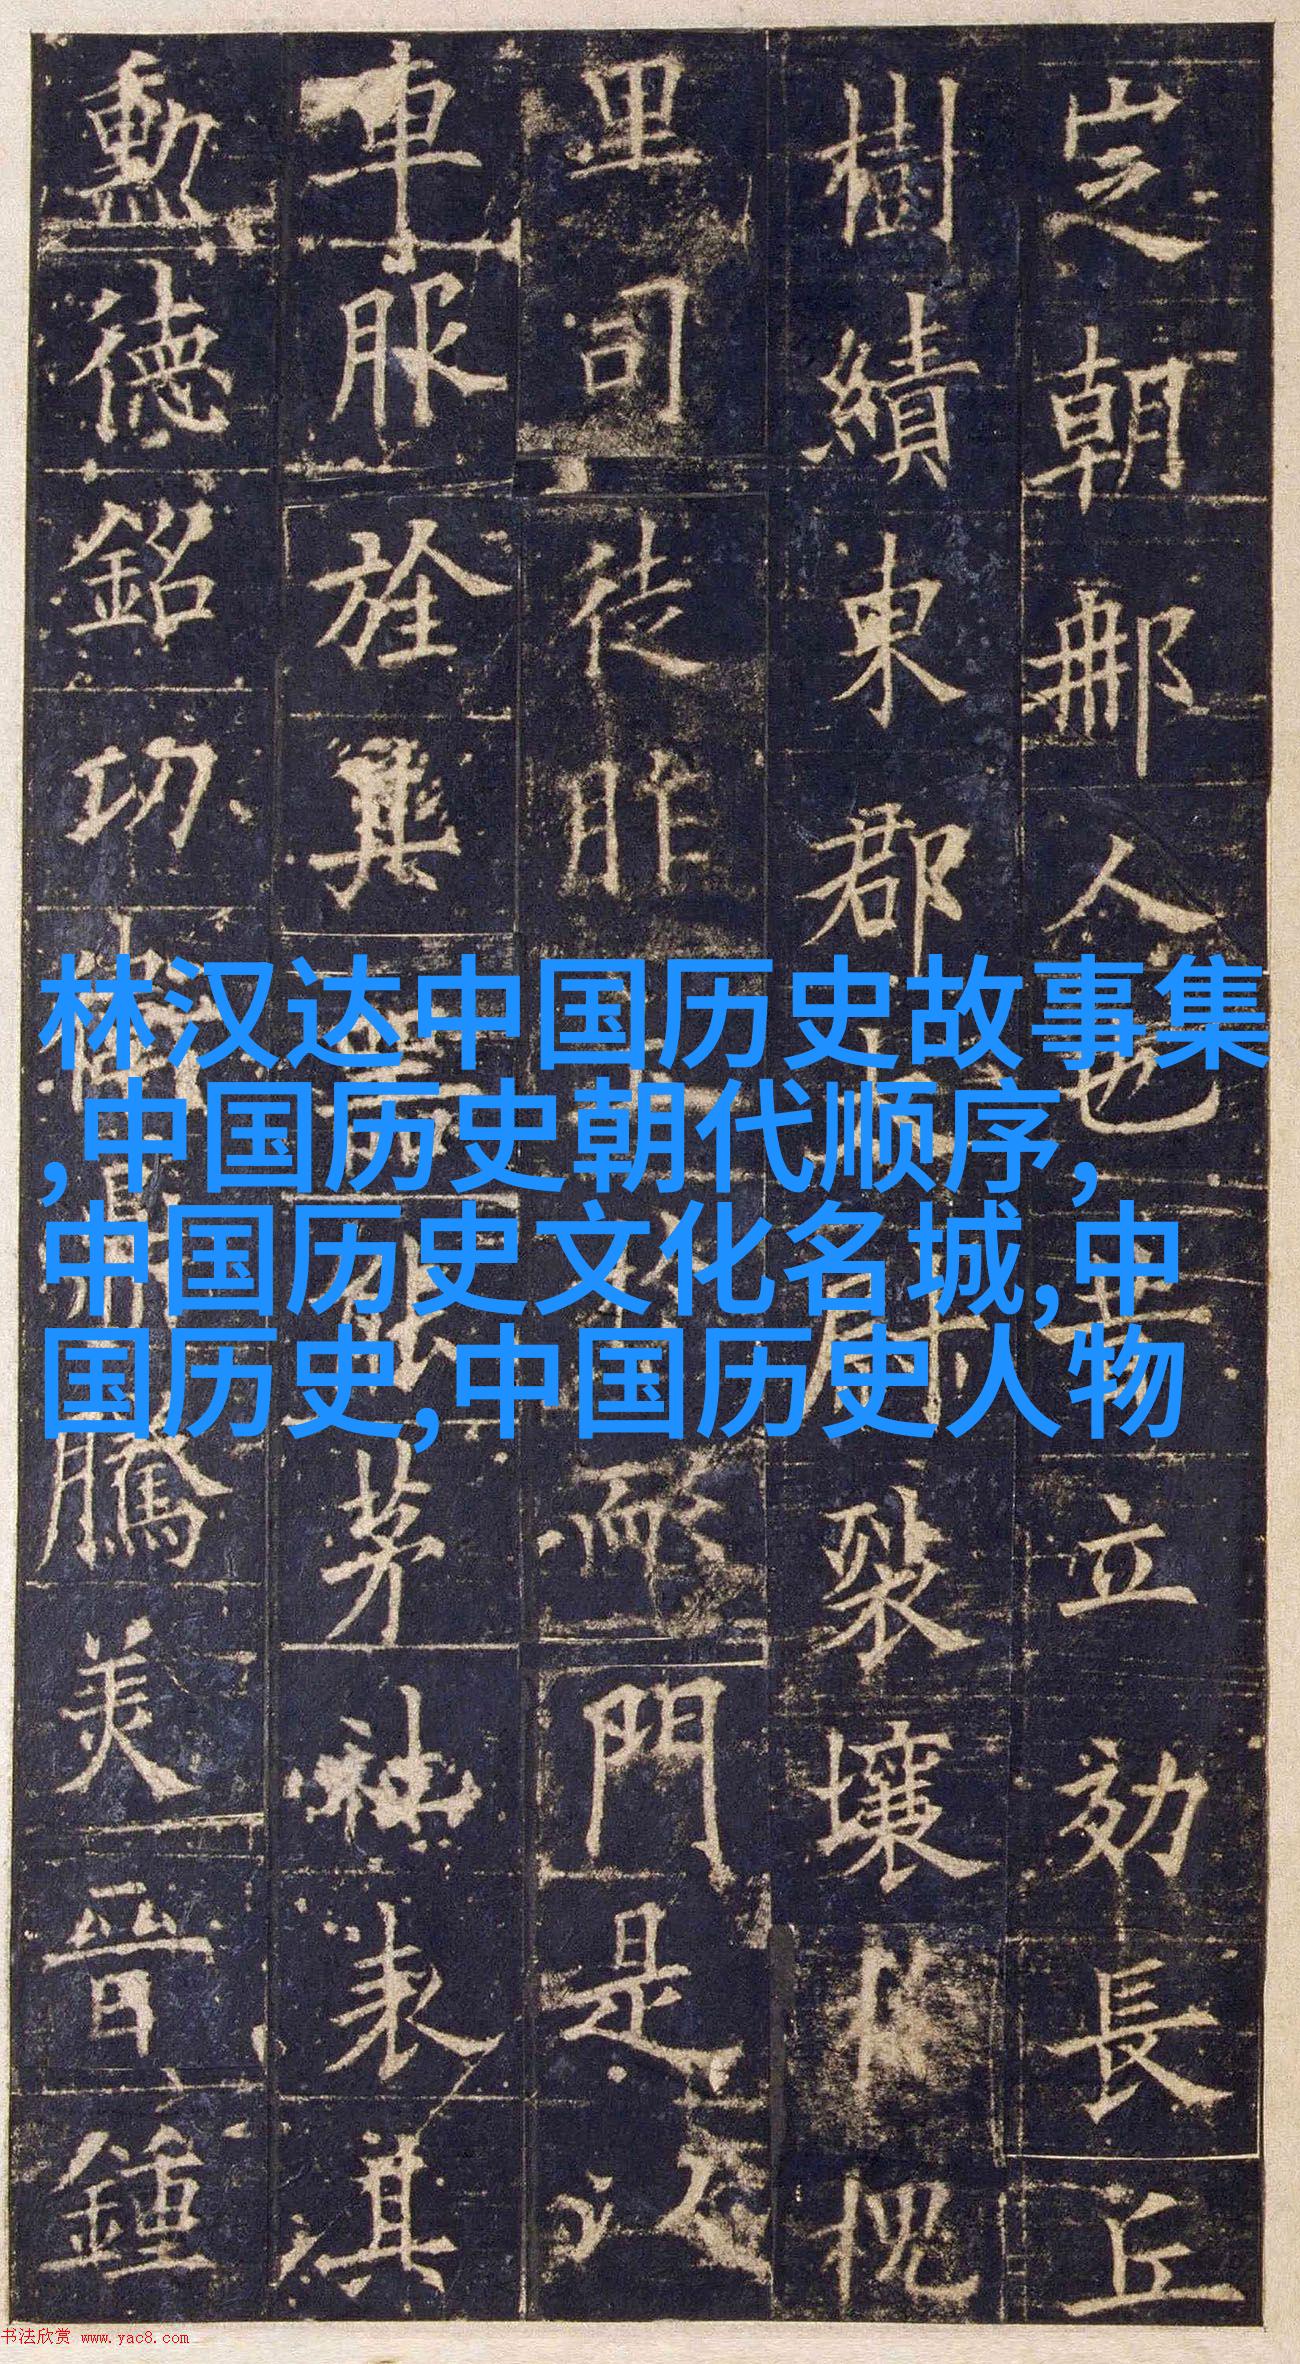 之朝邢人也 立効長丘
樹績東郡 尉裂壤 槐
里司徒胙 而 門是
車服旌其 茅 社表其
勳德銘功 騰美晉鍾
林汉达中国历史故事集
,中国历史朝代顺序,
中国历史文化名城,中
国历史,中国历史人物
书法欣赏 www.yac8.com